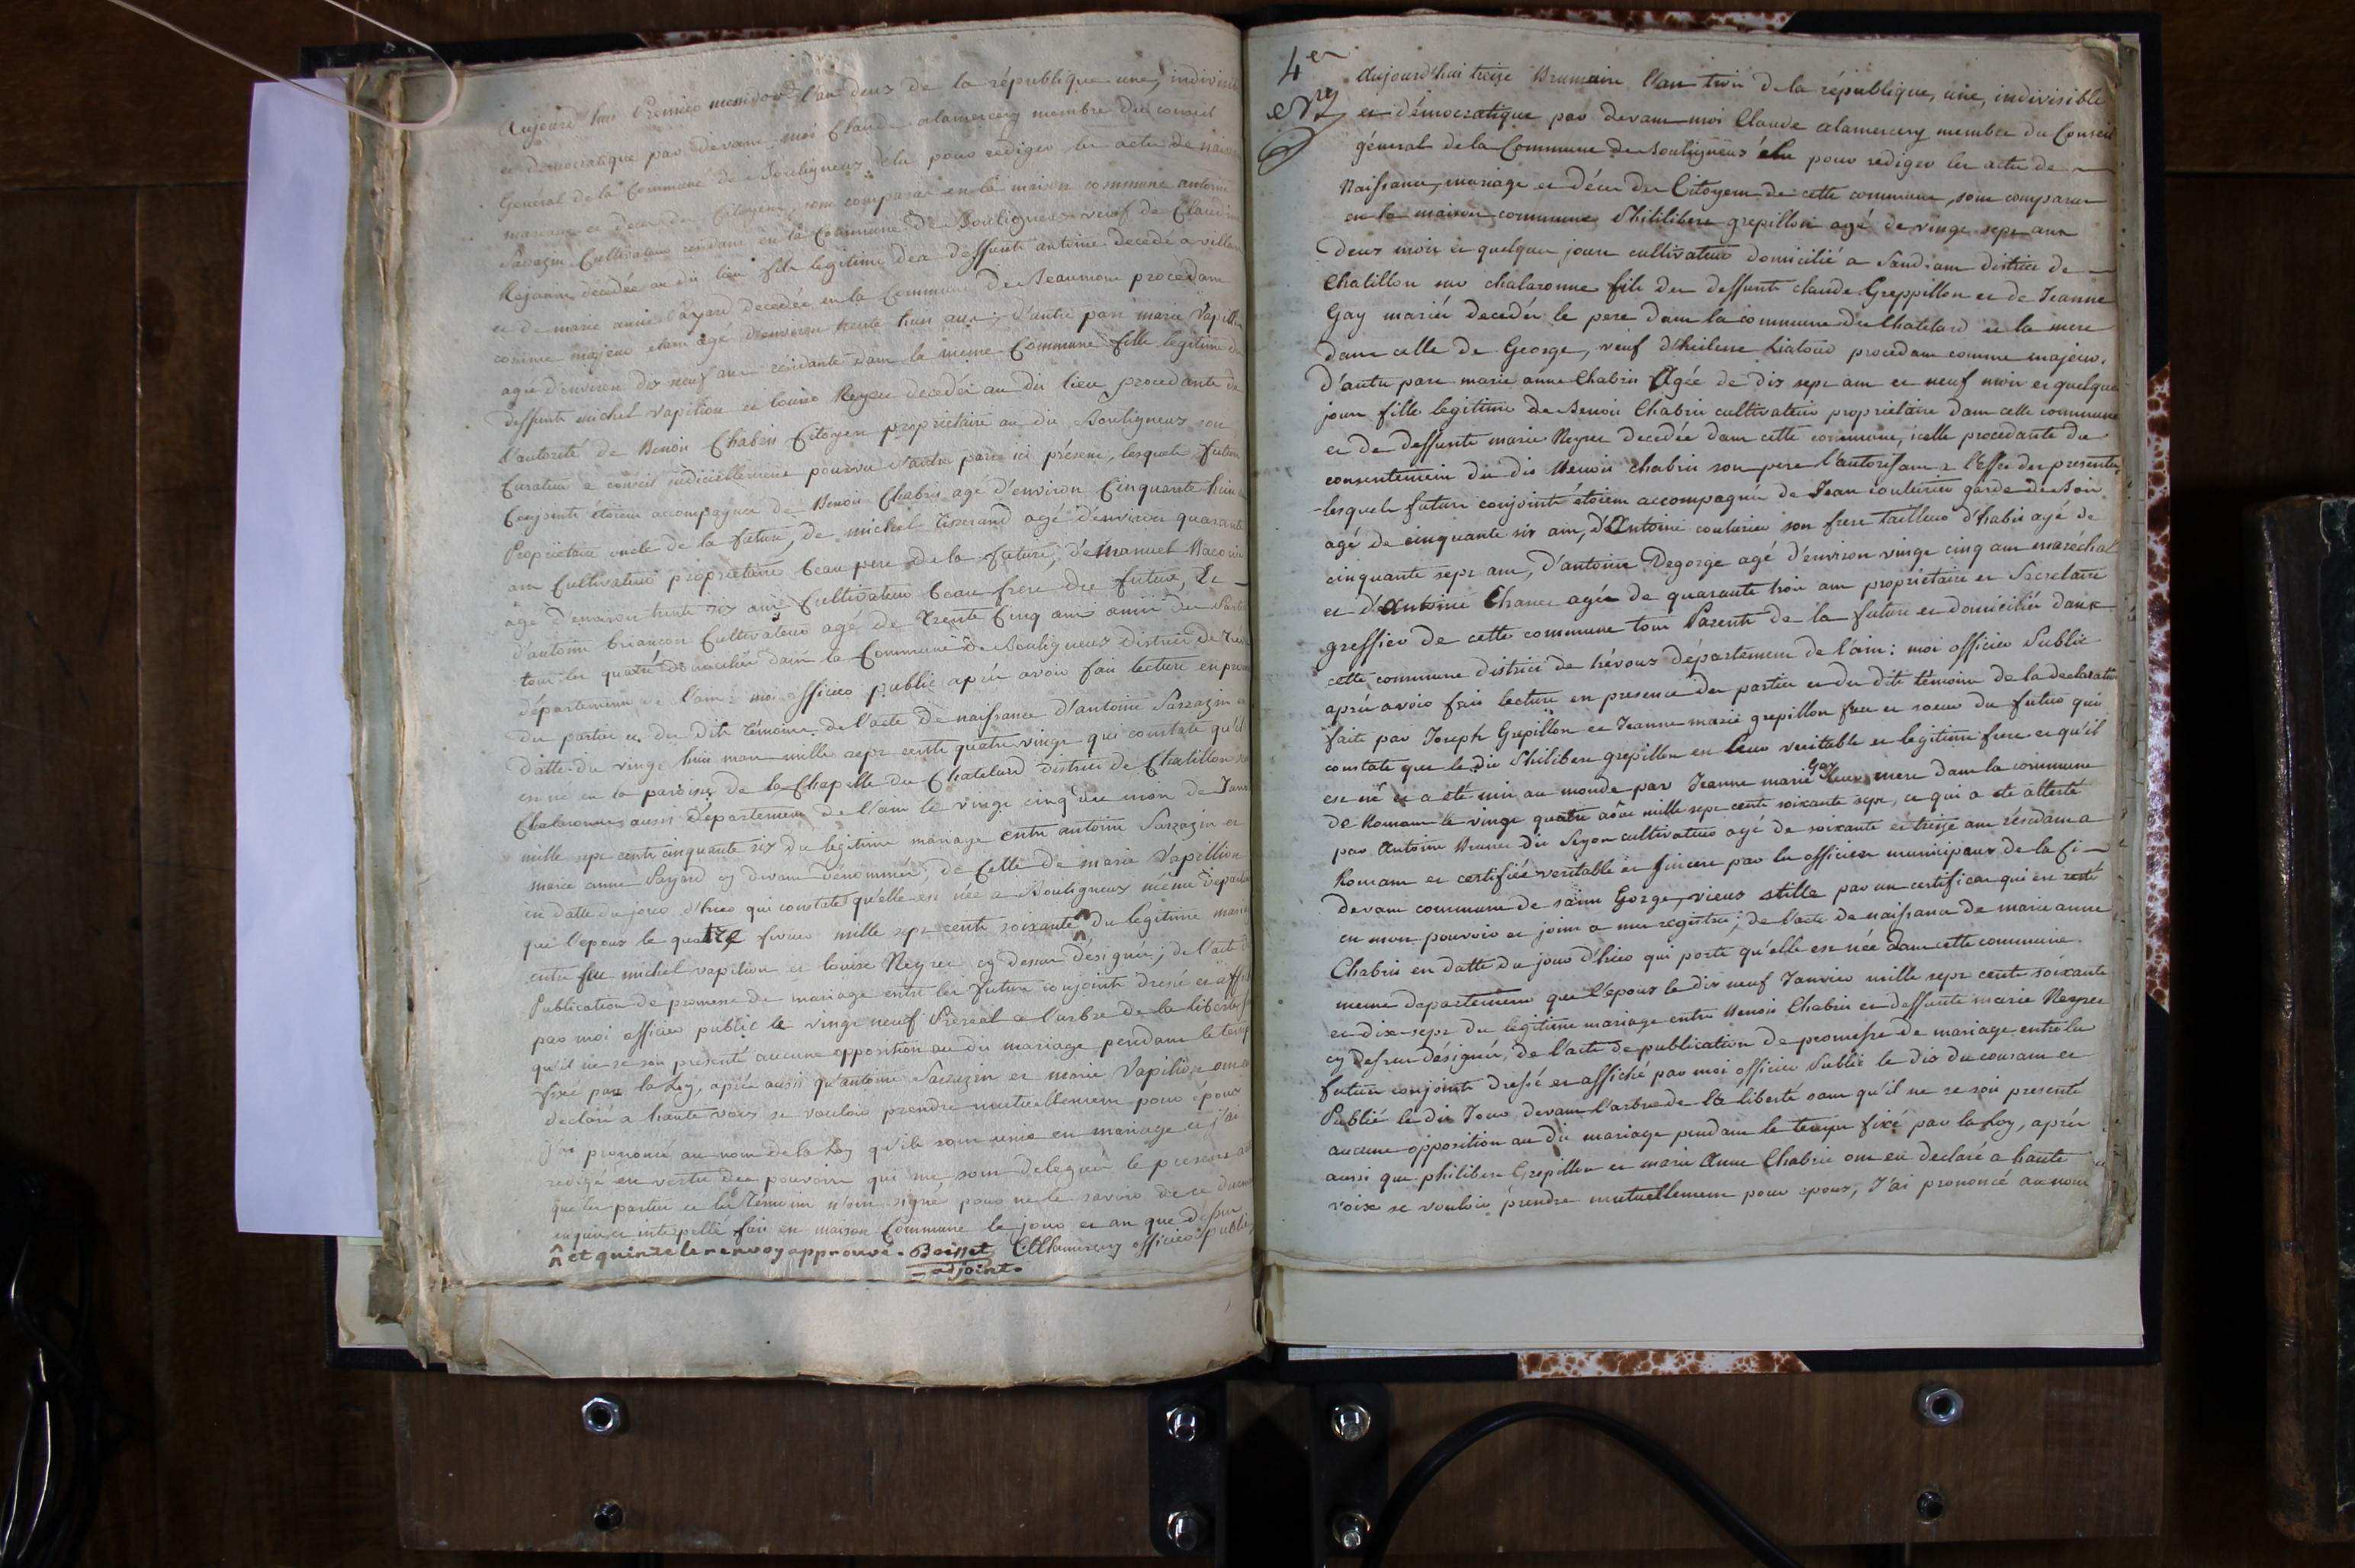 Aujourd'hui Premier messidor l'an deux de la république une, indivisi
et democratique par devant moi Claude alamercery membre du conseil
Général de la Commune de Bouligneux élu pour rediger les actes de naiss
mariages et décès des Citoyens, sont comparus en la maison commune antoine
Sarrazin Cultivateur residant en la Commune de Bouligneux veuf de Claudine
décédée au dit lieu fils legitime des deffunts antoine décédé a villar
et de marie anne Payard décédée en la Commune de Beaumont procedant
comme majeur etant âgé d'environ trente huit ans, d'autre part marie Vapillion
agée d'environ dix neuf ans residante dans la meme Commune fille legitime de
deffunts michel vapilion et louise Neyrec décédés au dit lieu, procedante de
l'autorité de Benoit Chabry Citoyen proprietaire au dit Bouligneux son
Curateur a conseil judiciellement pourvu d'autre part ici présent, lesquels futurs
Conjoints étoient accompagnés de Benoit Chabry agé d'environ Cinquante huit
Proprietaire oncle de la future, de michel Tisserand agé d'environ quarante
ans Cultivateur proprietaire beau pere de la future, d'emanuel
âgé d'environ trente six ans Cultivateur beau frere du futur, Et
d'antoine briancon Cultivateur agé de Trente Cinq ans amis des Parties
tous les quatre domiciliés dans la Commune de Bouligneux district de Trév
département de l'ain: moi officier public après avoir fait lecture en pres
des parties et des dits témoins de l'acte de naissance d'antoine Sarrazin en
datte du vingt huit mars mille sept cents quatre vingt qui constate qu'il
est né en la paroisse de la Chapelle du Chatelard district de Chatillon sur
Chalaronne aussi département de l'ain le vingt cinq du mois de Janv
mille sept cents cinquante six du legitime mariage entre antoine Sarrazin et
marie anne Payard cy devant denommés; de Celle de marie Vapillion
en datte du jour d'hier qui constate qu'elle est née a Bouligneux même départem
que l'epoux le quatre fevrier mille sept cents soixante ^ du legitime maria
entre feu michel vapilion et louise Neyrec cy dessus désignés; de l'acte de
Publication de promesse de mariage entre les futurs conjoints dressé et affi
par moi officier public le vingt neuf Prereal a l'arbre de la liberté s
qu'il ne se soit presenté aucune opposition au dit mariage pendant le temps
fixé par la Loy, après aussi qu'antoine Sarrazin et marie Vapilion ont eu
declaré a haute voix se vouloir prendre mutuellement pour époux
j'ai prononcé au nom de la Loy qu'ils sont unis en mariage et j'ai
redigé en vertu des pouvoirs qui me sont delegués le present
que les parties et les témoins n'ont signé pour ne le savoir de ce
enquis et interpellé fait en maison Commune le jour et an que dessus
^ et quinze le renvoy approuvé. Boisset CAlamercery officier public
adjoint.
4er
Aujourd'hui treize Brumaire l'an trois de la république, une, indivisible
et démocratique par devant moi Claude alamercery membre du Conseil
général de la Commune de Bouligneux élu pour rediger les actes de
Naissance, mariage et décès des Citoyens de cette commune, sont comparus
en la maison commune Philibert grepillon agé de vingt sept ans
Deux mois et quelques jours cultivateur domicilié a Sandrans district de
Chatillon sur chalaronne fils des deffunts claude Greppillon et de Jeanne
Gay mariés decedés le pere dans la commune du Chatelard et la mere
dans celle de George, veuf d'heilene Liatoud procedant comme majeur.
D'autre part marie anne Chabry Agée de dix sept ans et neuf mois et quelques
jours fille legitime de Benoit Chabry cultivateur proprietaire dans cette commune
et de deffunte marie Neyrec decedée dans cette commune, icelle procedante du
consentement du dit Benoit chabry son pere l'autorisant a l'effet des presentes,
lesquels futurs conjoints étoient accompagnés de Jean couturier garde de bois
agé de cinquante six ans, d'Antoine couturier son frere tailleur d'habit agé de
cinquante sept ans, D'antoine Degorge agé d'environ vingt cinq ans maréchal
et d'Antoine Chanel agée de quarante trois ans proprietaire et Secretaire
greffier de cette commune tous Parents de la future et domiciliés dans
cette commune district de trévoux département de l'ain: moi officier Public
après avoir fait lecture en presence des parties et des dits témoins de la declaration
faite par Joseph Grepillon et Jeanne marie grepillon frere et soeur du futur qui
constate que le dit Philibert grepillon est leur veritable et legitime frere et qu'il
est né et a été mis au monde par Jeanne marie Gay leur mere dans la commune
de Romans le vingt quatre août mille sept cents soixante sept, ce qui a été attesté
par Antoine Brunet dit Seyon cultivateur agé de soixante et treize ans résidant a
Romans et certifiée veritable et sincere par les officiers municipaux de la Ci
devant commune de saint Gorge, vieux stille par un certificat qui est resté
en mon pouvoir et joint a mes registres; de l'acte de naissance de marie anne
Chabry en datte du jour d'hier qui porte qu'elle est née dans cette commune
meme departement que l'epoux le dix neuf Janvier mille sept cents soixante
et dix-sept du legitime mariage entre Benoit Chabry et deffunte marie Neyrec
cy dessus désignés, de l'acte de publication de promesse de mariage entre les
futurs conjoints dressé et affiché par moi officier Public le dix du courant et
Publié le dit Jour, devant l'arbre de la liberté sans qu'il ne se soit presenté
aucune opposition au dit mariage pendant le temps fixé par la loy, après
aussi que philibert Grepillon et marie Anne Chabry ont eu declaré a haute
voix se vouloir prendre mutuellement pour epoux, J'ai prononcé au nom